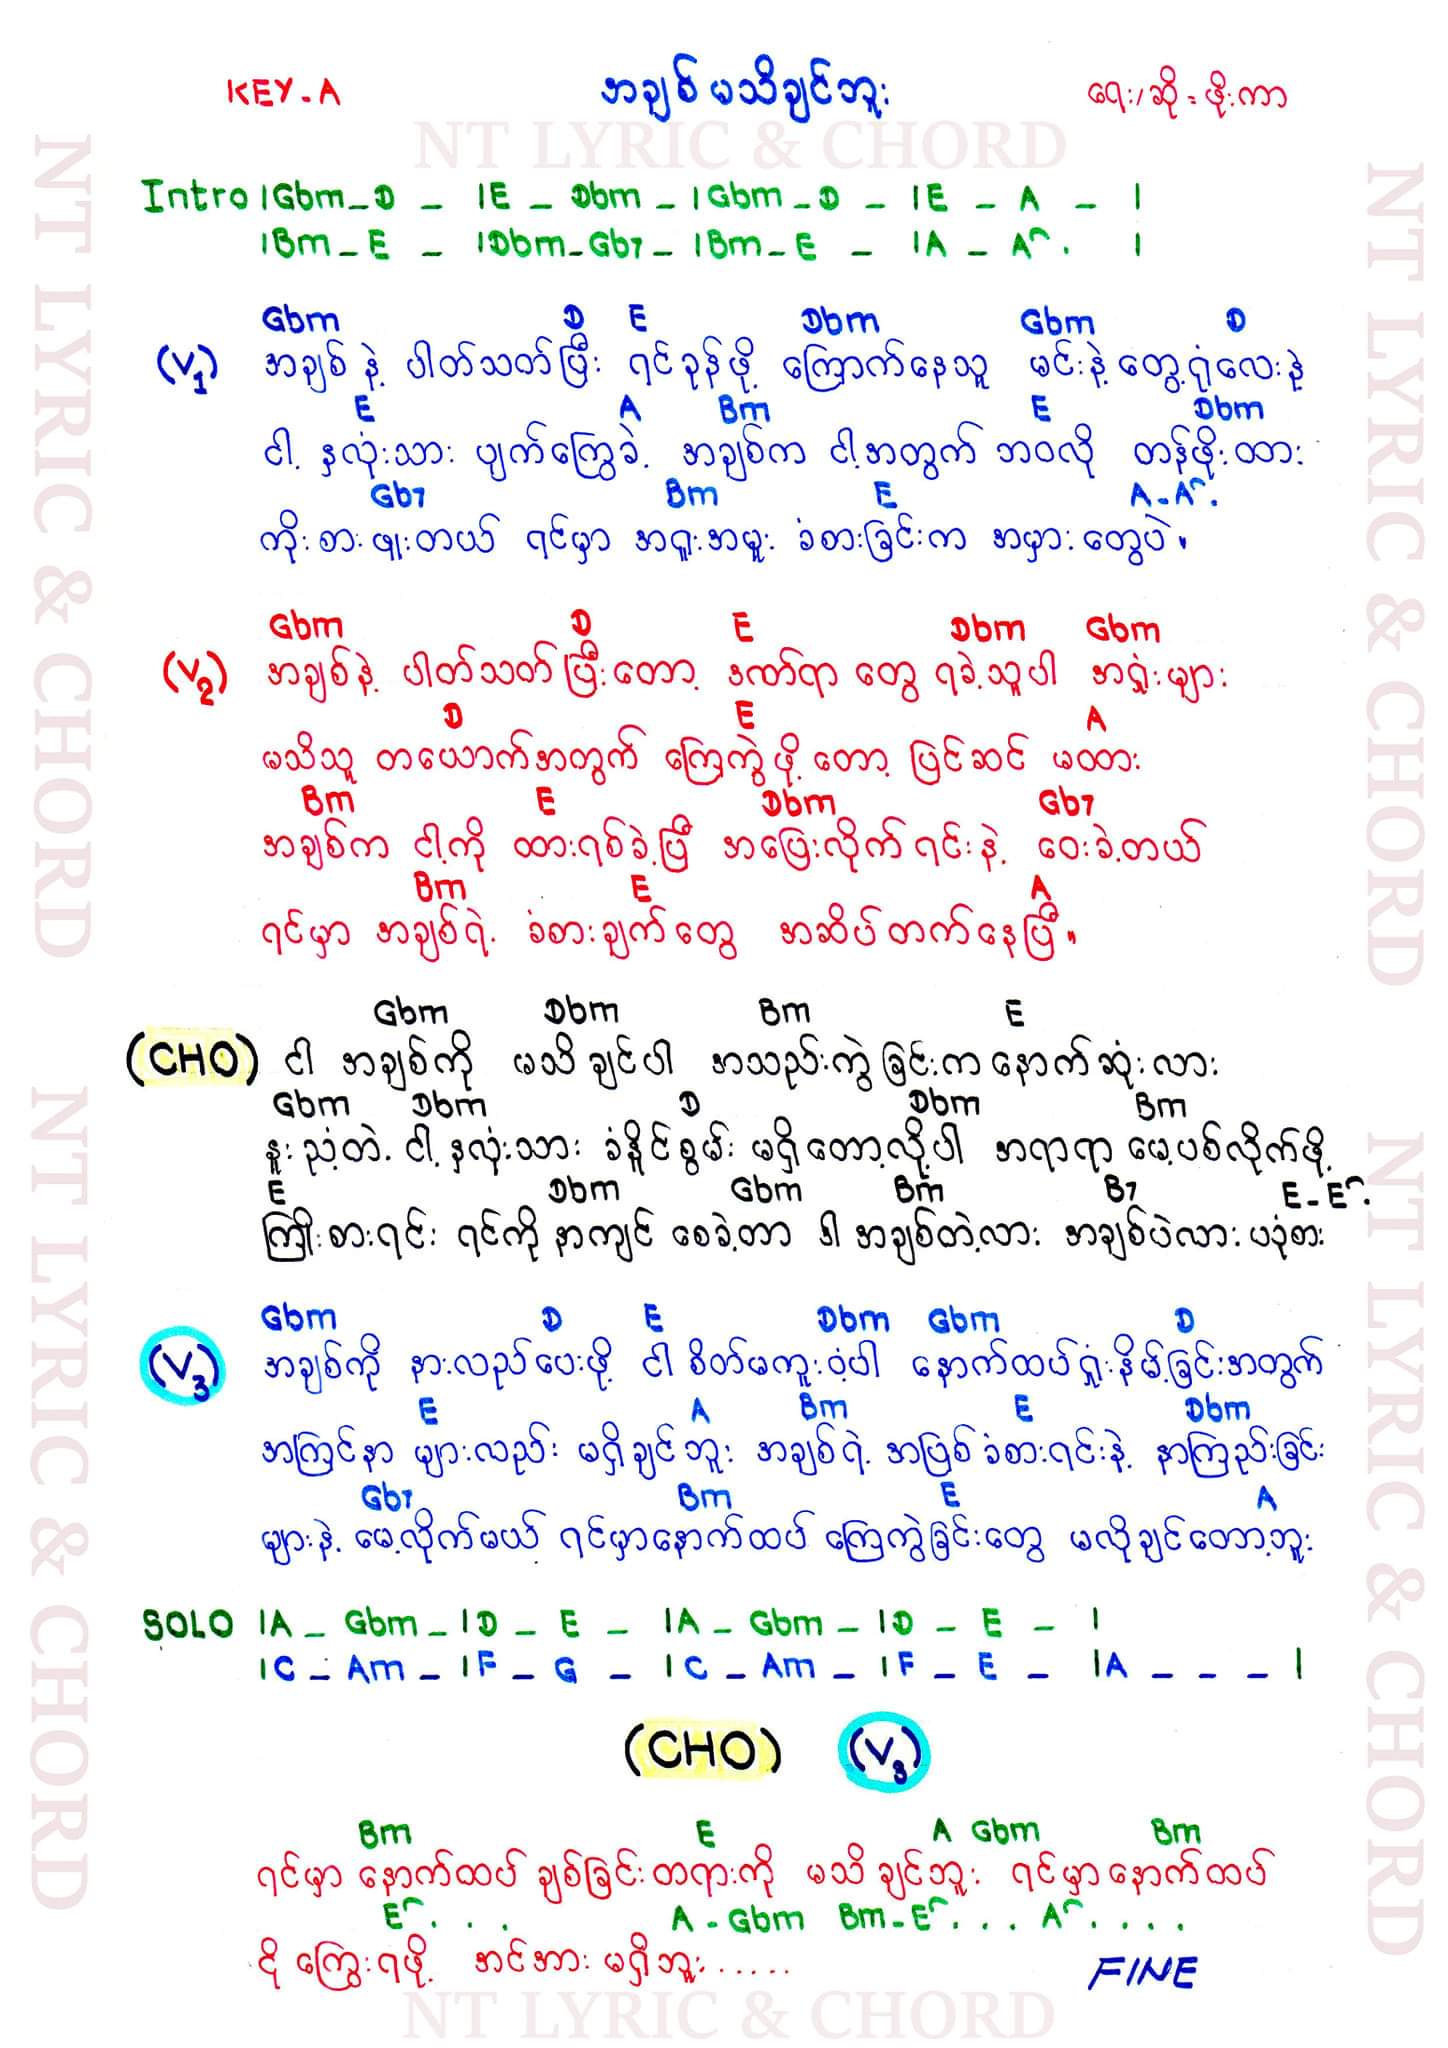 KEY-A အချစ်မသိချင်ဘူး ရေး/ဆို = ဖိုးကာ
NT LYRIC & CHORD
Intro |Gbm_D _ |E _ Dbm _ |Gbm _ D _ |E _ A _ |
|Bm_E _ |Dbm_Gb7_ |Bm_E _ |A _ A^. |
Gbm D E Dbm Gbm D
(V1) အချစ်နဲ့ ပါတ်သတ်ပြီး ရင်ခုန်ဖို့ ကြောက်နေသူ မင်းနဲ့တွေ့ရုံလေးနဲ့
E A Bm E Dbm
ငါ့ နှလုံးသား ပျက်ကြွေခဲ့ အချစ်က ငါ့အတွက် ဘဝလို တန်ဖိုးထား
Gb7 Bm E A-A^.
ကိုးစားဖူးတယ် ရင်မှာ အရူးအမူး ခံစားခြင်းက အမှားတွေပဲ။
Gbm D E Dbm Gbm
(V2) အချစ်နဲ့ ပါတ်သတ်ပြီးတော့ ဒဏ်ရာတွေ ရခဲ့သူပါ အရှုံးများ
D E A
မသိသူ တယောက်အတွက် ကြေကွဲဖို့တော့ ပြင်ဆင် မထား
Bm E Dbm Gb7
အချစ်က ငါ့ကို ထားရစ်ခဲ့ပြီ အပြေးလိုက်ရင်းနဲ့ ဝေးခဲ့တယ်
Bm E A
ရင်မှာ အချစ်ရဲ့ ခံစားချက်တွေ အဆိပ်တက်နေပြီ။
Gbm Dbm Bm E
(CHO) ငါ အချစ်ကို မသိချင်ပါ အသည်းကွဲခြင်းက နောက်ဆုံးလား
Gbm Dbm D Dbm Bm
နူးညံ့တဲ့ ငါ့နှလုံးသား ခံနိူင်စွမ်း မရှိတော့လို့ပါ အရာရာ မေ့ပစ်လိုက်ဖို့
E Dbm Gbm Bm B7 E-E^.
ကြိုးစားရင်း ရင်ကို နာကျင်စေခဲ့တာ ဒါ အချစ်တဲ့လား အချစ်ပဲလား ပုံစား
Gbm D E Dbm Gbm D
(V3) အချစ်ကို နားလည်ပေးဖို့ ငါ စိတ်မကူးဝံ့ပါ နောက်ထပ်ရှုံးနိမ့်ခြင်းအတွက်
E A Bm E Dbm
အကြင်နာများလည်း မရှိချင်ဘူး အချစ်ရဲ့ အပြစ်ခံစားရင်းနဲ့ နာကြည်းခြင်း
Gb7 Bm E A
များနဲ့ မေ့လိုက်မယ် ရင်မှာနောက်ထပ် ကြေကွဲခြင်းတွေ မလိုချင်တော့ဘူး
SOLO |A _ Gbm _ |D _ E _ |A _ Gbm _ |D _ E _ |
|C _ Am _ |F _ G _ |C _ Am _ |F _ E _ |A _ _ _ |
(CHO) (V3)
Bm E A Gbm Bm
ရင်မှာ နောက်ထပ် ချစ်ခြင်းတရားကို မသိချင်ဘူး ရင်မှာနောက်ထပ်
E^. . . A-Gbm Bm-E^. . . A^. . . .
ငိုကြွေးရဖို့ အင်အား မရှိဘူး.....
FINE
NT LYRIC & CHORD
NT LYRIC & CHORD
NT LYRIC & CHORD
NT LYRIC & CHORD
NT LYRIC & CHORD